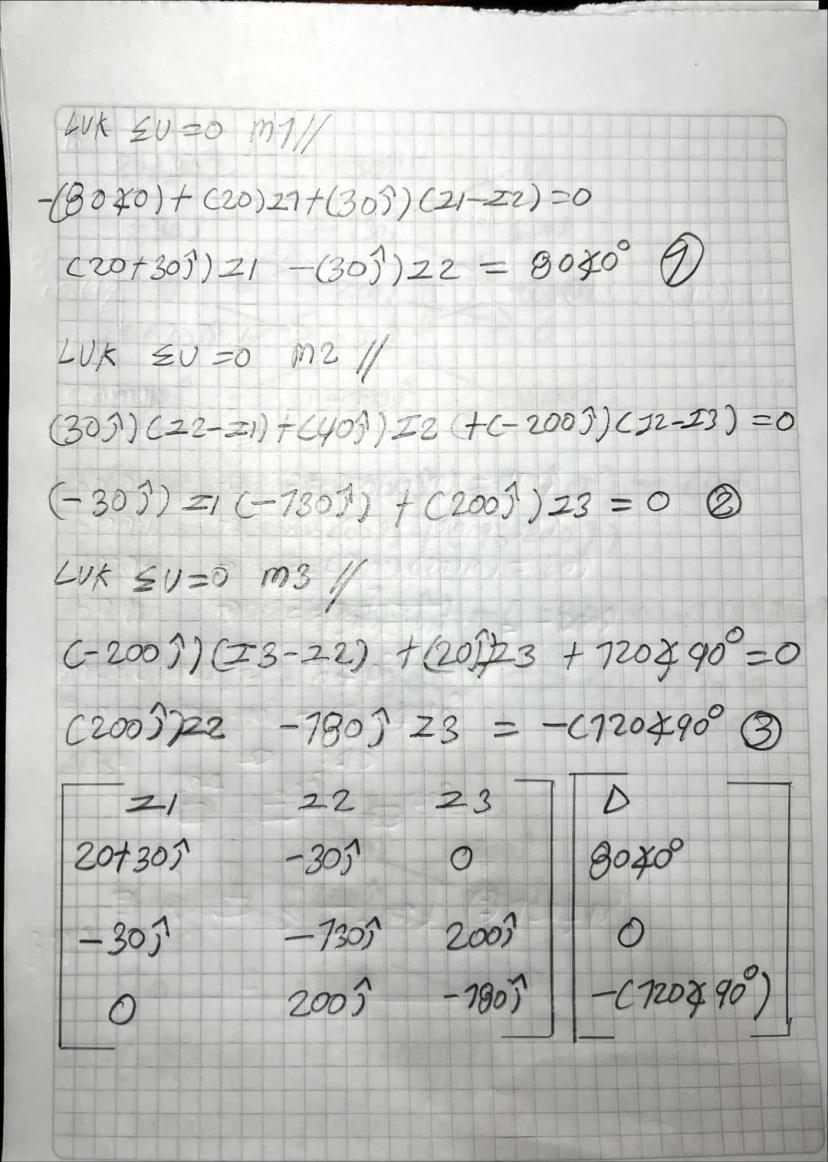 LVK ΣV=0 m1//
-(80∡0)+(20)I1+(30j)(I1-I2)=0
(20+30j)I1 -(30j)I2 = 80∡0° ①
LVK ΣV=0 m2 //
(30j)(I2-I1)+(40j)I2 +(-200j)(I2-I3)=0
(-30j)I1 (-130j) +(200j)I3 = 0 ②
LVK ΣV=0 m3 //
(-200j)(I3-I2) +(20j)I3 + 120∡90°=0
(200j)I2 -180j I3 = -(120∡90° ③
I1 I2 I3 D
20+30j -30j 0 80∡0°
-30j -130j 200j 0
0 200j -180j -(120∡90°)